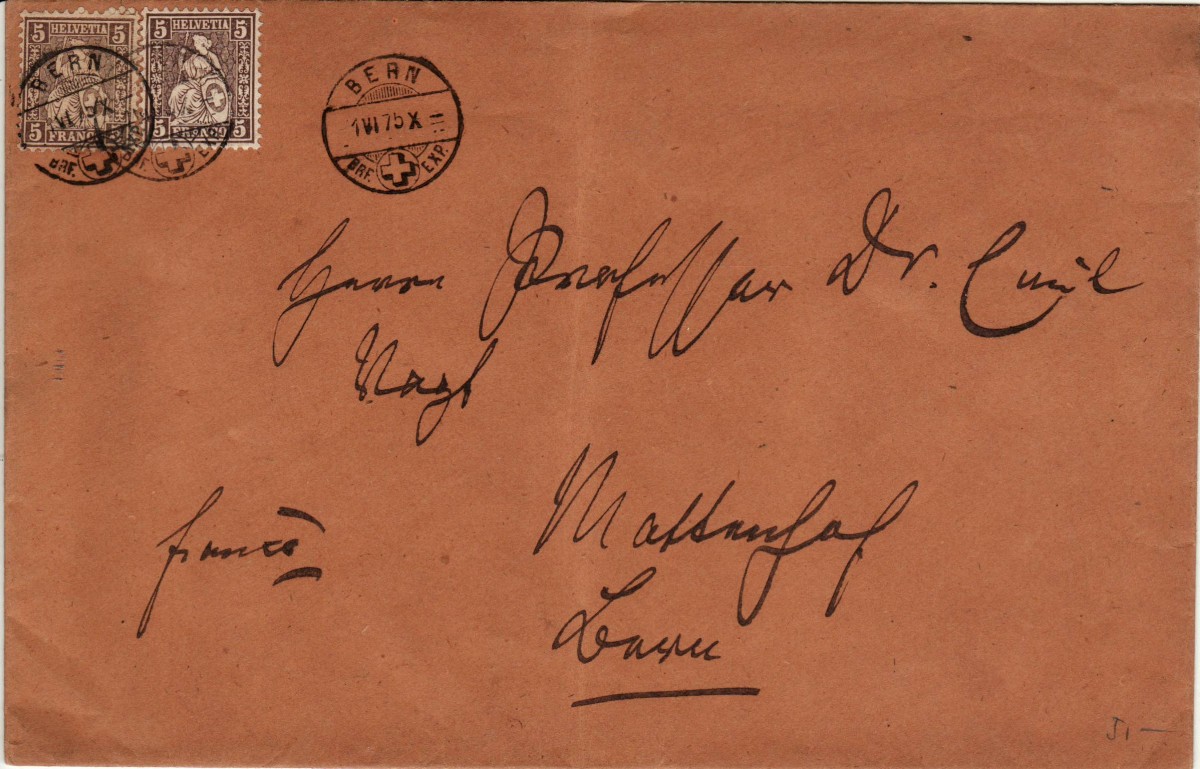 5 HELVETIA 5
5 FRANCO 5
5 HELVETIA 5
5 FRANCO 5
BERN
VI 75 X
BRF.
BERN
1 VI 75 X
BRF. EXP.
Herrn Professor Dr. Emil
Vogt
franco
Mattenhof
Bern